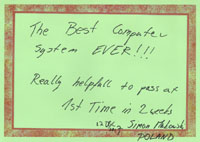 The Best Computer
System EVER!!!
Really helpfull to pass at
1st Time in 2 weeks
Simon
POLAND